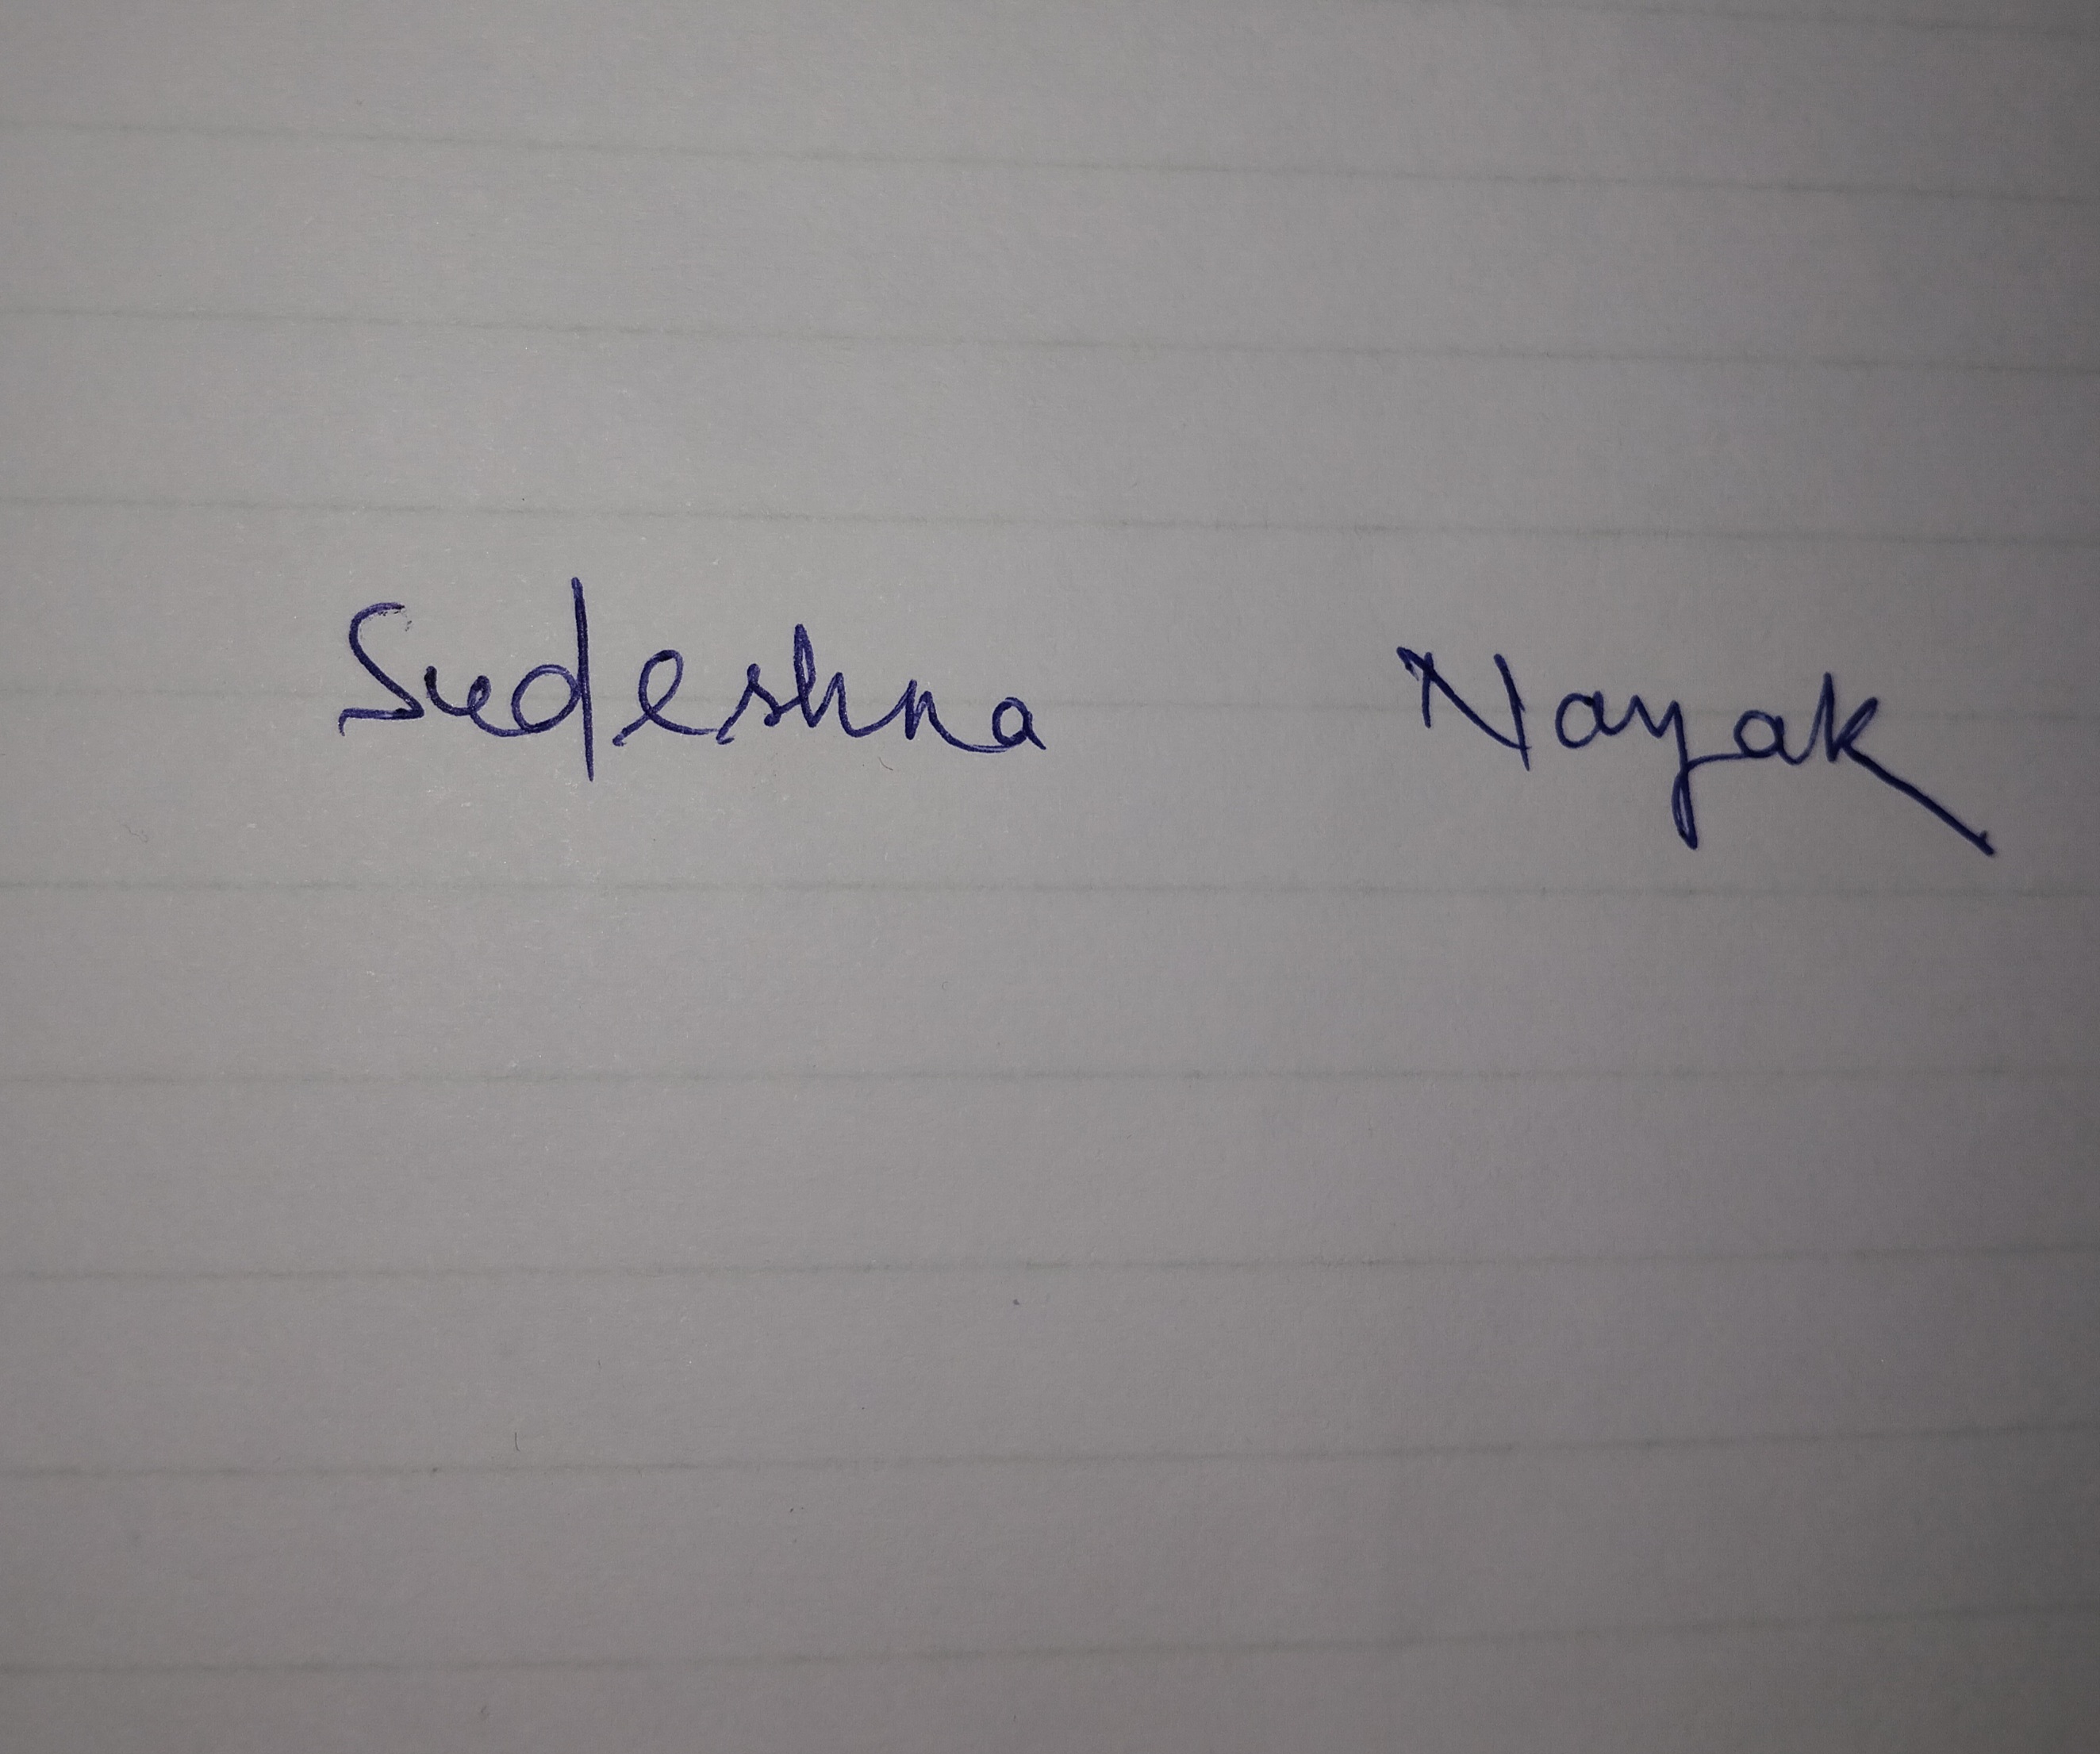 Sudeshna Nayak